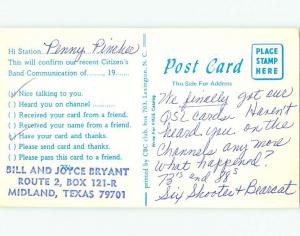 Hi Station Penny Pincher
This will confirm our recent Citizen's
Band Communication of ........, 19 ....
(✓) Nice talking to you.
( ) Heard you on channel ............
( ) Received your name from a friend.
( ) Received your card from a friend.
(✓) Have your card and thanks.
( ) Please send card and thanks.
( ) Please pass this card to a friend.
BILL AND JOYCE BRYANT
ROUTE 2, BOX 121-R
MIDLAND, TEXAS 79701
printed by CBC club, box 703, Lexington, N. C.
Post Card
This Side For Address
PLACE
STAMP
HERE
We finally got our
QSL cards. Haven't
heard you on the
channels any more
What happened?
73's and 88's
Six Shooter & Bearcat